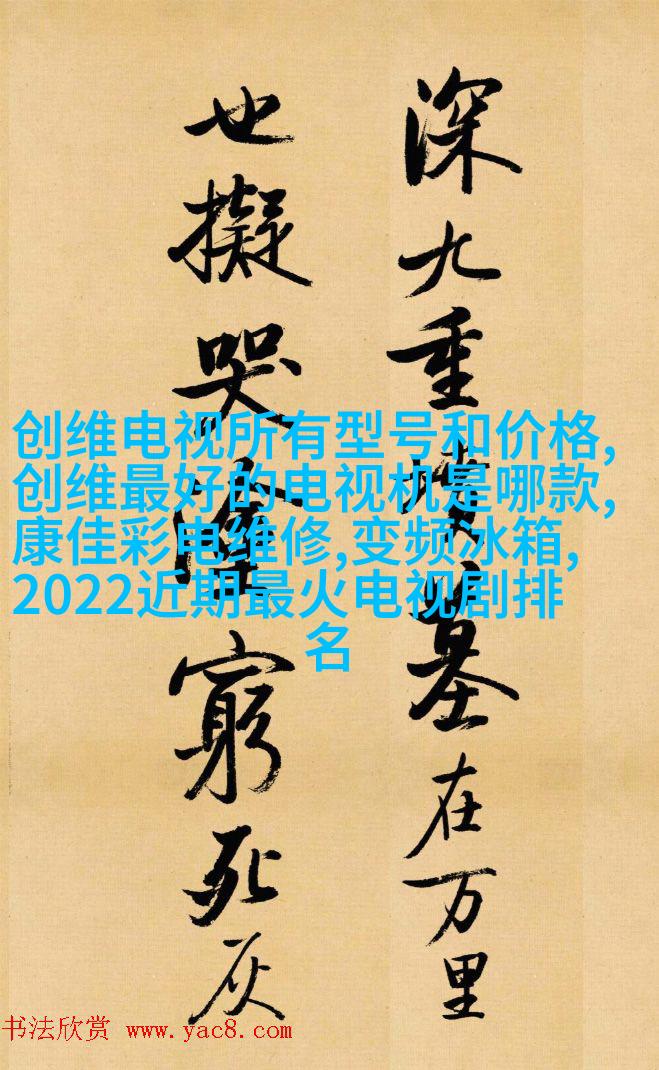 深九重墳墓在万里
也擬哭塗窮死灰
创维电视所有型号和价格,
创维最好的电视机是哪款,
康佳彩电维修,变频冰箱,
2022近期最火电视剧排
名
书法欣赏 www.yac8.com